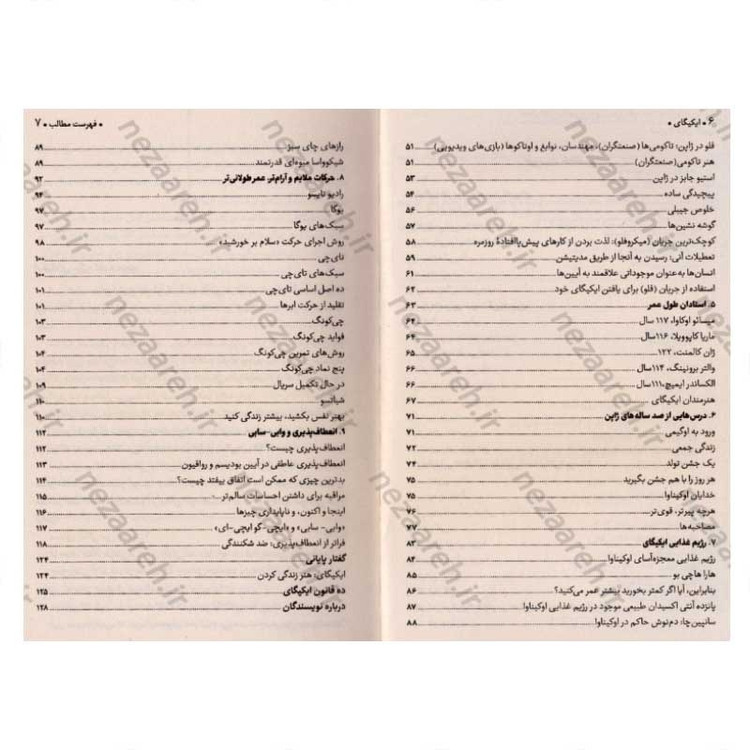 ۶ • ایکیگای •
فلو در ژاپن: تاکومی‌ها (صنعتگران)، مهندسان، نوابغ و اوتاکوها (بازی‌های ویدیویی) ۵۱
هنر تاکومی (صنعتگران) ۵۱
استیو جابز در ژاپن ۵۳
پیچیدگی ساده ۵۴
خلوص جیبلی ۵۶
گوشه نشین‌ها ۵۷
کوچک‌ترین جریان (میکروفلو): لذت بردن از کارهای پیش‌پاافتادهٔ روزمره ۵۸
تعطیلات آنی: رسیدن به آنجا از طریق مدیتیشن ۵۹
انسان‌ها به‌عنوان موجوداتی علاقمند به آیین‌ها ۶۱
استفاده از جریان (فلو) برای یافتن ایکیگای خود ۶۲
۵. استادان طول عمر ۶۳
میسائو اوکاوا، ۱۱۷ سال ۶۴
ماریا کاپوویلا، ۱۱۶سال ۶۴
ژان کالمنت، ۱۲۲ ۶۵
والتر برونینگ، ۱۱۴سال ۶۶
الکساندر ایمیچ،۱۱۱سال ۶۶
هنرمندان ایکیگای ۶۷
۶. درس‌هایی از صد ساله‌های ژاپن ۷۱
ورود به اوگیمی ۷۱
زندگی جمعی ۷۲
یک جشن تولد ۷۴
هر روز را با هم جشن بگیرید ۷۵
خدایان اوکیناوا ۷۵
هرچه پیرتر، قوی‌تر ۷۶
مصاحبه‌ها ۷۷
۷. رژیم غذایی ایکیگای ۸۳
رژیم غذایی معجزه‌آسای اوکیناوا ۸۴
هارا هاچی بو ۸۵
بنابراین، آیا اگر کمتر بخورید بیشتر عمر می‌کنید؟ ۸۶
پانزده آنتی اکسیدان طبیعی موجود در رژیم غذایی اوکیناوا ۸۷
سانپین‌چا: دم‌نوش حاکم در اوکیناوا ۸۸
• فهرست مطالب • ۷
رازهای چای سبز ۸۹
شیکوواسا میوه‌ای قدرتمند ۸۹
۸. حرکات ملایم و آرام‌تر، عمرطولانی‌تر ۹۳
رادیو تایسو ۹۴
یوگا ۹۷
سبک‌های یوگا ۹۷
روش اجرای حرکت «سلام بر خورشید» ۹۸
تای‌چی ۱۰۰
سبک‌های تای‌چی ۱۰۰
ده اصل اساسی تای‌چی ۱۰۱
تقلید از حرکت ابرها ۱۰۱
چی‌کونگ ۱۰۳
فواید چی‌کونگ ۱۰۳
روش‌های تمرین چی‌کونگ ۱۰۴
پنج نماد چی‌کونگ ۱۰۴
در حال تکمیل سریال ۱۰۹
شیاتسو ۱۱۰
بهتر نفس بکشید، بیشتر زندگی کنید ۱۱۰
۹. انعطاف‌پذیری و وابی-سابی ۱۱۲
انعطاف‌پذیری چیست؟ ۱۱۲
انعطاف‌پذیری عاطفی در آیین بودیسم و رواقیون ۱۱۳
بدترین چیزی که ممکن است اتفاق بیفتد چیست؟ ۱۱۴
مراقبه برای داشتن احساسات سالم‌تر ۱۱۵
اینجا و اکنون، و ناپایداری چیزها ۱۱۶
«وابی- سابی» و «ایچی-گو ایچی-ای» ۱۱۷
فراتر از انعطاف‌پذیری: ضد شکنندگی ۱۱۸
گفتار پایانی ۱۲۴
ایکیگای: هنر زندگی کردن ۱۲۴
ده قانون ایکیگای ۱۲۵
درباره نویسندگان ۱۲۸
nezaareh.ir